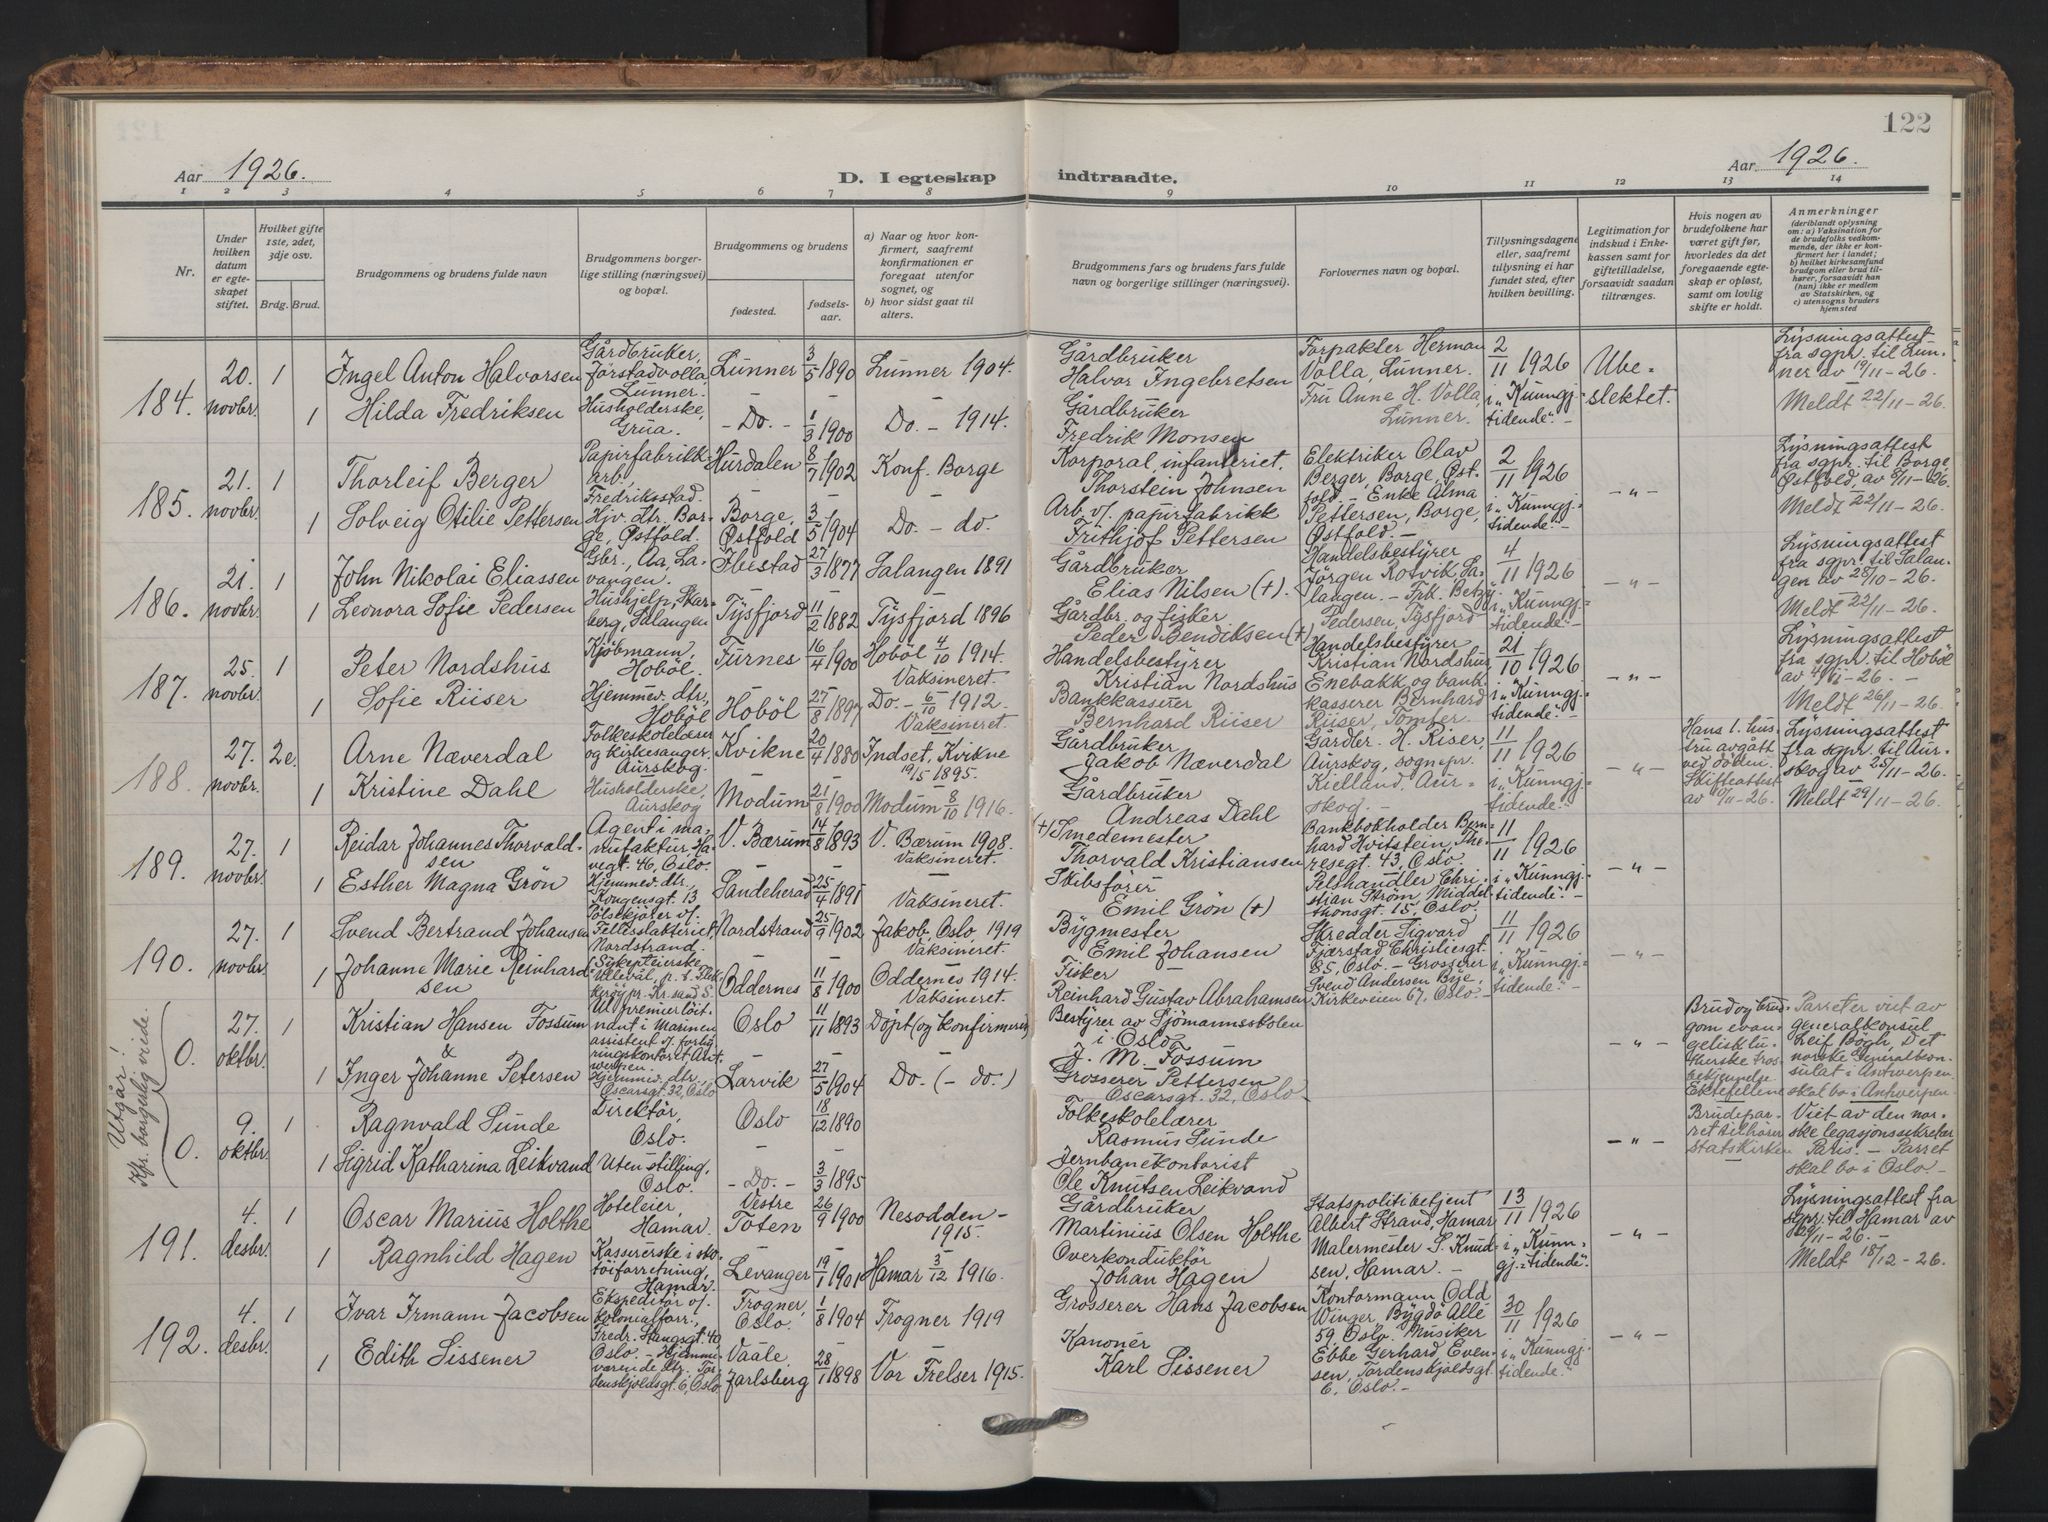 122
Aar 1926.
D. I egteskap indtraadte.
Aar 1926.
1 2 3 4 5 6 7 8 9 10 11 12 13 14
Nr.
Under hvilken datum er egteskapet stiftet.
Hvilket gifte 1ste, 2det, 3dje osv.
Brdg. Brud.
Brudgommens og brudens fulde navn
Brudgommens borgerlige stilling (næringsvei) og bopæl.
Brudgommens og brudens
fødested.
fødselsaar.
a) Naar og hvor konfirmert, saafremt konfirmationen er foregaat utenfor sognet, og
b) hvor sidst gaat til alters.
Brudgommens fars og brudens fars fulde navn og borgerlige stillinger (næringsvei).
Forlovernes navn og bopæl.
Tillysningsdagene eller, saafremt tillysning ei har fundet sted, efter hvilken bevilling.
Legitimation for indskud i Enkekassen samt for giftetilladelse, forsaavidt saadan tiltrænges.
Hvis nogen av brudefolkene har været gift før, hvorledes da det foregaaende egteskap er opløst, samt om lovlig skifte er holdt.
Anmerkninger
(deriblandt oplysning om: a) Vaksination for de brudefolks vedkommende, der ikke er konfirmert her i landet; b) hvilket kirkesamfund brudgom eller brud tilhører, forsaavidt han (hun) ikke er medlem av Statskirken, og c) utensogns bruders hjemsted
184. 20. novbr. 1
Ingel Anton Halvorsen
Gårdbruker, Førstadvolla, Lunner.
Lunner 3/5 1890
Lunner 1904.
Gårdbruker
Halvor Ingebretsen
Forpakter Herman Volla, Lunner.
Fru Anne H. Volla, Lunner.
2/11 1926 i „Kunngj.tidende".
Ubeslektet.
Lysningsattest fra sgpr. til Lunner av 19/11-26.
Meldt 22/11-26.
1 Hilda Fredriksen
Husholderske, Grua.
- Do. - 1/3 1900
Do. - 1914.
Gårdbruker
Fredrik Monsen
185. 21. novbr. 1
Thorleif Berger
Papirfabrikkarb. Fredriksstad.
Hurdalen 8/7 1902
Konf. Borge
Korporal, infanteriet,
Thorstein Johnsen
Elektriker Olav Berger, Borge, Østfold. - Enke Alma Pettersen, Borge, Østfold. -
2/11 1926 i „Kunngj.tidende". -
- " -
Lysningsattest fra sgpr. til Borge, Østfold, av 8/11-26.
Meldt 22/11-26.
1 Solveig Otilie Pettersen
Hjv. dtr. Borge, Østfold.
Borge, Østfold 3/5 1904
Do. - do.
Arb. v. papirfabrikk
Frithjof Pettersen
186. 21. novbr. 1
John Nikolai Eliassen
Gbr., Aa, Lavangen.
Ibestad 27/3 1877
Salangen 1891
Gårdbruker
Elias Nilsen (+).
Handelsbestyrer Jørgen Rotvik, Salangen. - Frk. Betzy Pedersen, Tysfjord
4/11 1926 i „Kunngj.tidende". -
- " -
Lysningsattest fra sgpr. til Salangen av 28/10-26.
Meldt 22/11-26.
1 Leonora Sofie Pedersen
Hushjelp, Skarberg, Salangen
Tysfjord 11/2 1882
Tysfjord 1896
Gårdbr. og fisker
Peder Bendiksen (+)
187. 25. novbr. 1
Peter Nordshus
Kjøbmann, Hobøl.
Furnes 16/4 1900
Hobøl 4/10 1914. Vaksineret.
Handelsbestyrer
Kristian Nordshus
Handelsbestyrer Kristian Nordshus, Enebakk og bankkasserer Bernhard Riiser, Tomter.
21/10 1926 i „Kunngj.tidende". -
- " -
Lysningsattest fra sgpr. til Hobøl av 4/11-26. -
Meldt 26/11-26.
1 Sofie Riiser
Hjemmev. dtr., Hobøl
Hobøl 27/8 1897
Do. - 6/10 1912. Vaksineret.
Bankkasserer
Bernhard Riiser
188. 27. novbr. 2e.
Arne Næverdal
Folkeskolelærer og kirkesanger. Aurskog.
Kvikne 20/4 1880
Indset, Kvikne 19/5 1895.
Gårdbruker
Jakob Næverdal
Gårdbr. H. Riser, Aurskog, sognepr. Kielland, Aurskog. -
11/11 1926 i „Kunngj.tidende".
- " -
Hans 1. hustru avgått ved døden. Skifteattest av 10/11-26.
Lysningsattest fra sgpr. til Aurskog av 25/11-26.
Meldt 29/11-26.
1 Kristine Dahl
Husholderske, Aurskog
Modum 21/8 1900
Modum 8/10 1916.
Gårdbruker
Andreas Dahl
189. 27. novbr. 1
Reidar Johannes Thorvaldsen
Agent i manufaktur Havegt. 46, Oslo.
V. Bærum 14/8 1893
V. Bærum 1908. Vaksineret.
(+) Smedemester
Thorvald Kristiansen
Bankbokholder Bernhard Hvitstein, Theresegt. 43, Oslo. Pelshandler Christian Strøm, Middelthonsgt. 15, Oslo.
11/11 1926 i „Kunngj.tidende". -
- " -
1 Esther Magna Grøn
Hjemmev. dtr., Kongensgt. 13
Sandeherad 25/4 1891
Vaksineret.
Skibsfører
Emil Grøn (+)
190. 27. novbr. 1
Svend Bertrand Johansen
Pølsekjører v. Fellesslakteriet, Nordstrand.
Nordstrand 25/9 1902
Jakob, Oslo, 1919 Vaksineret.
Bygmester
Emil Johansen
Skredder Sigvard Fjærstad Christiesgt. 85, Oslo. - Grosserer Svend Andersen Bye, Kirkeveien 67, Oslo. -
11/11 1926 i „Kunngj.tidende". -
- " -
1 Johanne Marie Reinhardsen
Sykepleierske, Ullevål, p. t. Flekkerøy pr. Kr.sand S.
Oddernes 11/8 1900
Oddernes 1914. Vaksineret.
Fisker -
Reinhard Gustav Abrahamsen
Utgår! Kfr. borgerlig viede.
0. 27. oktbr. 1
Kristian Hansen Fossum
&
premierløitnant i Marinen assistent v. forhyringskontoret Antwerpen.
Oslo 11/11 1893
Døpt (og konfirmeret)
Bestyrer av Sjømannsskolen i Oslo
J. M. Fossum
- " -
Brud og brudgom evangelisk lutherske trosbekjendelse
Ektefellene skal bo i Antwerpen.
Parret er viet av generalkonsul Leif Bøgh, Det norske Generalkonsulat i Antwerpen.
1 Inger Johanne Petersen
Hjemmev. dtr., Oscarsgt. 32, Oslo
Larvik 27/5 1904
Do. (- do.)
Grosserer Pettersen
Oscarsgt. 32, Oslo -
0. 9. oktbr. 1
Ragnvald Sunde
Direktør, Oslo.
Oslo 18/12 1890
Folkeskolelærer
Rasmus Sunde
- " -
Brudeparret tilhører statskirken
Viet av den norske legasjonssekretær Paris. - Parret skal bo i Oslo. -
1 Sigrid Katharina Leikvand
Uten stilling, Oslo.
- Do. - 3/3 1895
Jernbanekontorist
Ole Knutsen Leikvand
191. 4. desbr. 1
Oscar Marius Holthe
Hoteleier, Hamar.
Vestre Toten 26/9 1900
Nesodden - 1915.
Gårdbruker
Martinius Olsen Holthe
Statspolitibetjent Albert Strand, Hamar
Malermester S. Knudsen, Hamar. -
13/11 1926 i „Kunngj.-tidende".
- " -
Lysningsattest fra sgpr. til Hamar av 29/11-26. -
Meldt 18/12-26.
1 Ragnhild Hagen
Kassererske i skotøiforretning, Hamar.
Levanger 19/1 1901
Hamar 3/12 1916.
Overkonduktør
Johan Hagen
192. 4. desbr. 1
Ivar Irmann Jacobsen
Ekspeditør v. kolonialforr., Fredr. Stangsgt. 40 Oslo. -
Frogner, Oslo. 1/8 1904
Frogner 1919
Grosserer Hans Jacobsen
Kontormann Odd Winger, Bygdø Allé 59 Oslo. Musiker Ebbe Gerhard Evensen, Tordenskjoldsgt. 6, Oslo. -
30/11 1926 i „Kunngj.tidende".
- " -
1 Edith Sissener
Hjemmeværende dtr. Tordenskjoldsgt. 6, Oslo
Vaale, Jarlsberg 28/1 1898
Vor Frelser 1915.
Kanonér
Karl Sissener